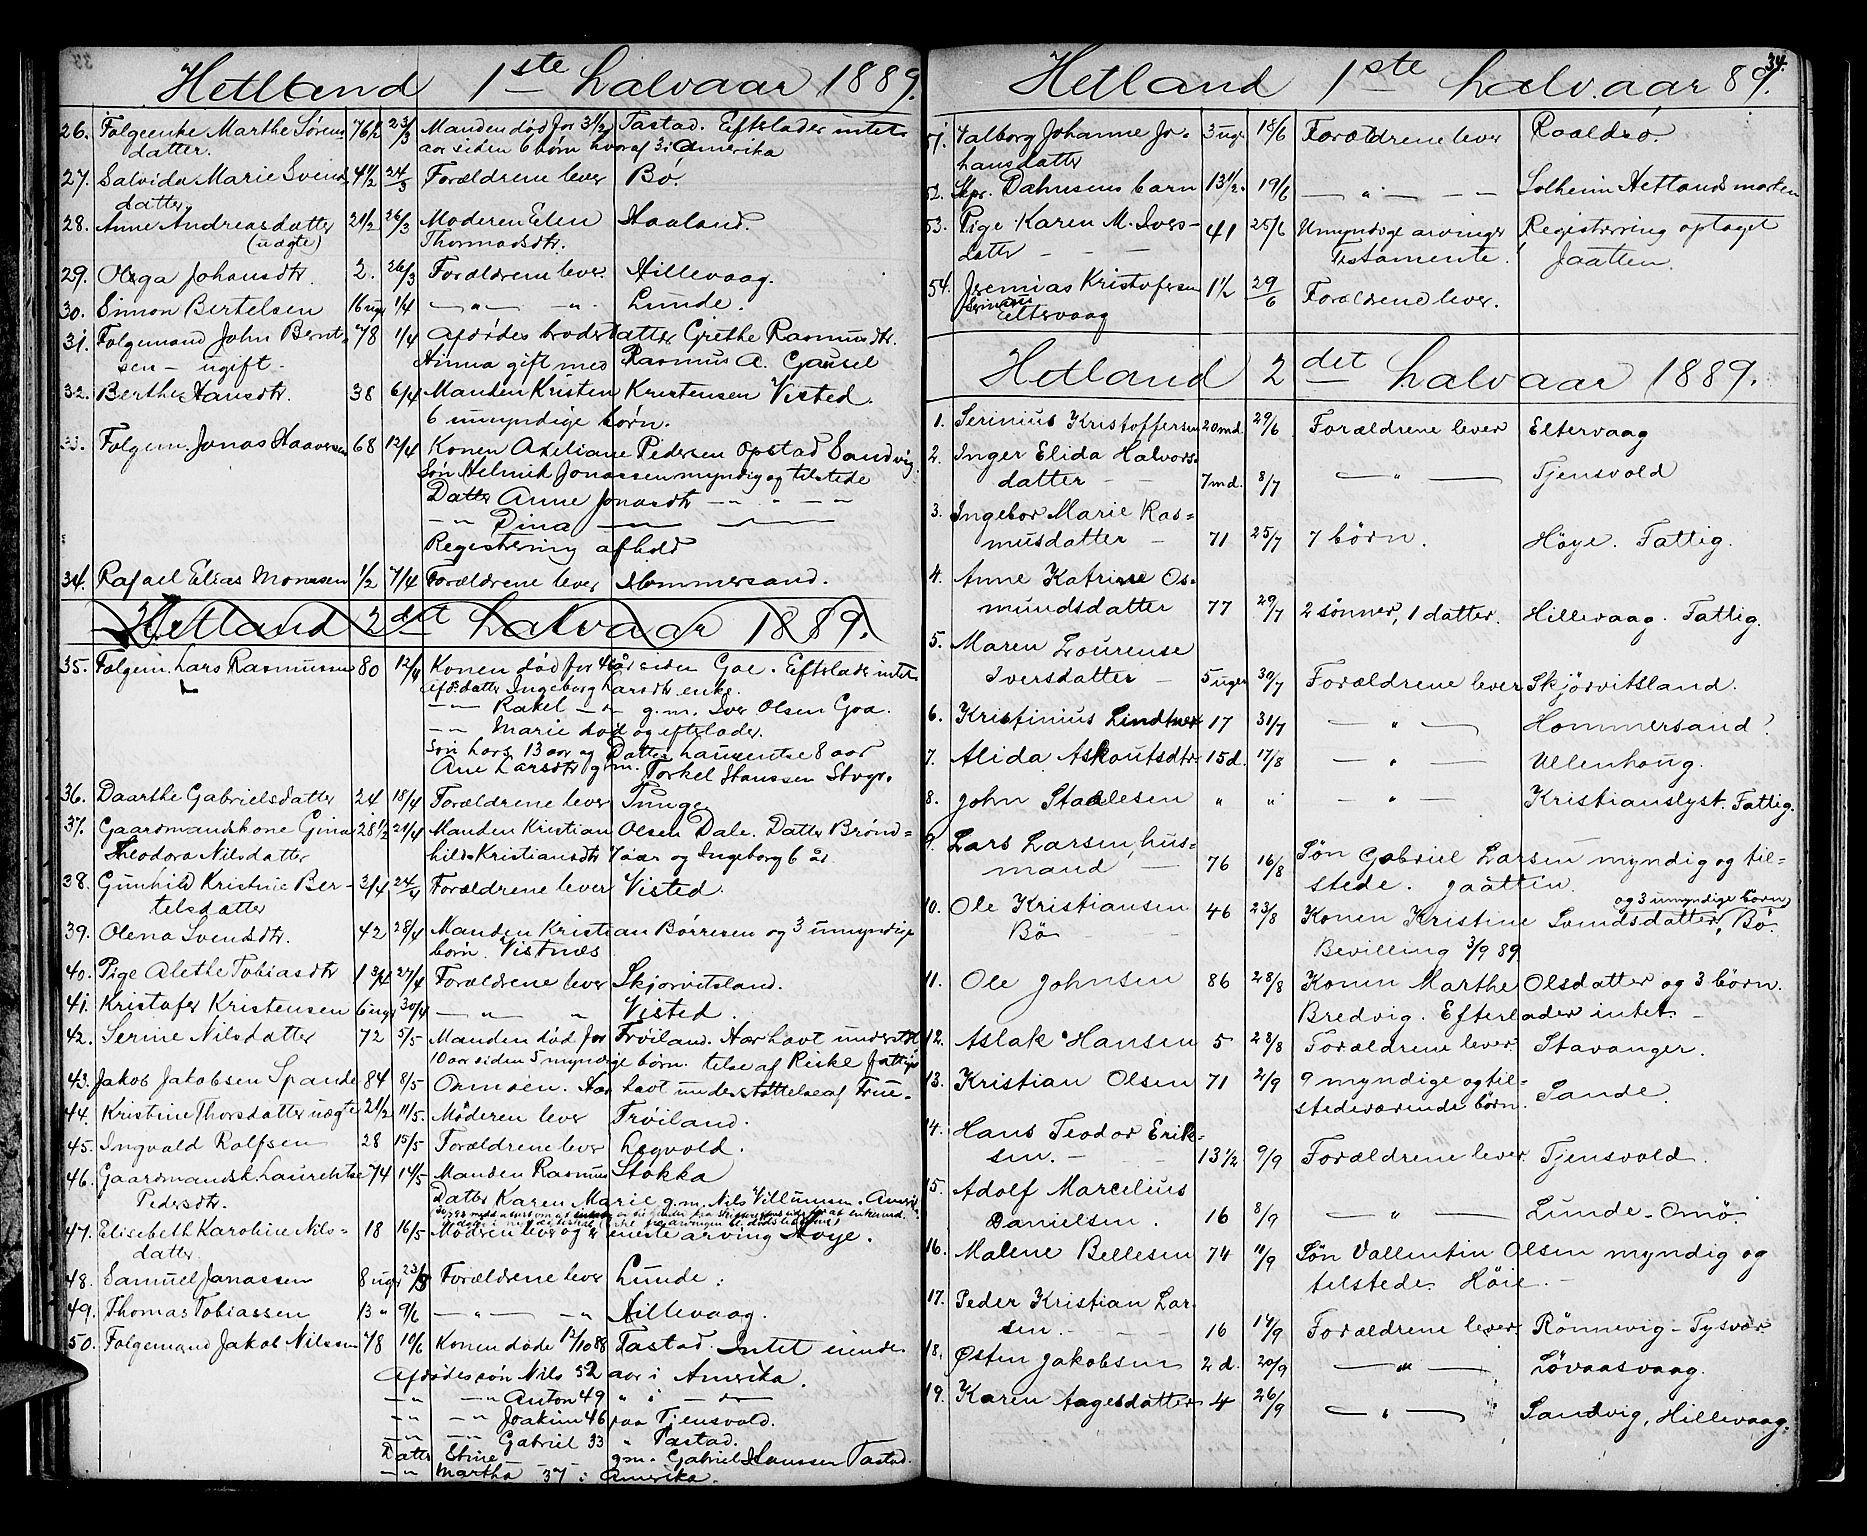 Hetland 1ste halvaar 1889.
26. Folgeenke Marthe Sørens- 76½ 23/3 Manden død for 3½ Tastad. Efterlader intet
datter. aar siden 6 børn hvoraf 3 i Amerika
27. Salvida Marie Svends 4½ 24/3 Forældrene lever Bø.
datter
28. Anne Andreasdatter 2½ 26/3 Moderen Elen Haaland.
(uægte) Thomasdtr.
29. Olga Johansdtr 2. 26/3 Forældrene lever Hillevaag.
30. Simon Bertelsen 16 ugr 1/4 — " — " Lunde.
31. Folgemand John Bernt- 78 1/4 Afdødes broderdatter Grethe Rasmusdtr.
sen - ugift - Hinna gift med Rasmus A. Gausel
32. Berthe Hansdtr. 38 6/4 Manden Kristen Kristensen Visted.
6 umyndige børn.
33. Folgem Jonas Haaversen 68 12/4 Konen Axeliane Pedersen Opstad Sandvig
Søn Helmik Jonassen myndig og tilstede
Datter Anne Jonasdtr — " — " —
— " Dina — " —
Registrering afhold
34. Rafael Elias Monsen ½ 7/4 Forældrene lever Hommersand.
Hetland 2det halvaar 1889.
35. Folgem. Lars Rasmussen 80 12/4 Konen død for 4 år siden Goe. Efterlader intet
datter Ingeborg Larsdtr enke.
— " Rakel — " — g.m. Iver Olsen Goa.
— " Marie død og efterlader
Søn Lars 13 aar og Datter Laurentse 8 aar
Ane Larsdtr g.m. Torkel Hanssen Stvgr.
36. Daarthe Gabrielsdatter 24 18/4 Forældrene lever Tunge
37. Gaardmandskone Gina 28½ 21/4 Manden Kristian Olsen Dale. Datter Brønd-
Theodora Nilsdatter hilde Kristiansdtr 7 aar og Ingeborg 6 år
38. Gunhild Kristine Ber- 3/4 24/4 Forældrene lever Visted.
telsdatter
39. Olena Svensdtr. 42 28/4 Manden Kristian Børresen og 3 umyndige
børn. Vistnæs
40. Pige Alethe Tobiasdtr 1 3/4 27/4 Forældrene lever Skjorvitsland.
41. Kristofer Kristensen 6 ugr 30/4 — " " Visted.
42. Serine Nilsdatter 72 5/5 Manden død for Frøiland. Har havt understøt
10 aar siden 5 myndige børn. telse af Riske fattige
43. Jakob Jakobsen Spande 84 8/5 Ormøen. Har havt understøttelse af
44. Kristine Thorsdatter uægte 2½ 11/5. Møderen lever Frøiland.
45. Ingvald Rolfsen 28 15/5 Forældrene lever Legvold.
46. Gaardmandsk. Laurentse 74 14/5 Manden Rasmus Stokka
Pedersdtr. Datter Karen Marie g.m. Nils Villumsen. Amerik.
47. Elisebeth Karoline Nils- 18 16/5 Modren lever og er eneste arving Høye.
datter.
48. Samuel Janassen 8 ugr 23/5 Forældrene lever Lunde.
49. Thomas Tobiassen 13 " 9/6 — " — " Hillevaag.
50. Folgemand Jakob Nilssen 78 10/6 Konen døde 17/10 88 Tastad. Intet eiende
Afdødes søn Nils 52 aar i Amerika.
— " — " Anton 49 " i — " —
— " — " Joakim 46 paa Tjensvold.
— " — " Gabriel 33 " Tastad.
Datter Stine — g.m. Gabriel Hanssen Tastad.
— " Martha 37 i Amerika.
34.
Hetland 1ste halv.aar 89.
51. Valborg Johanne Jo- 3 uger 18/6 Forældrene lever Roaldsø.
hansdatter
52. Skpr. Dahnsens barn 13½ 19/6 — " — — Solheim Hetlandsmarken
53. Pige Karen M. Ivers- 41 25/6 Umyndige arvinger Registrering optaget
datter — — Testamente! Jaatten.
54. Jeremias Kristofersen 1½ 29/6 Forældrene lever.
Serinius
Eltervaag
Hetland 2det halvaar 1889.
1. Serinius Kristoffersen 20 md. 29/6 Forældrene lever Eltervaag
2. Inger Elida Halvors-
datter — — 7 md. 8/7 — " — Tjensvold
3. Ingebor Marie Ras-
musdatter — 71 25/7 7 børn. Høye. Fattig.
4. Anne Katrine Os-
mundsdatter 77 29/7 2 sønner, 1 datter. Hillevaag. Fattig.
5. Maren Lourense
Iversdatter — 5 uger 30/7 Forældrene lever Skjørvitsland.
6. Kristinius Lindtner 17 31/7 — " — Hommersand!
7. Alida Askautsdtr 15 d. 17/8 — " — Ullenhaug.
8. John Staalesen " " — " — Kristianslyst. Fattig.
9. Lars Larsen, hus-
mand — 76 16/8 Søn Gabriel Larsen myndig og til-
stede. Jaatten.
10. Ole Kristiansen 46 23/8 Konen Kristine Svendsdatter, Bø.
og 3 umyndige børn
Bø — Bevilling 3/9 89
11. Ole Johnsen 86 28/8 Konen Marthe Olsdatter og 3 børn.
Bredvig. Efterlader intet. —
12. Aslak Hansen 5 28/8 Forældrene lever. Stavanger.
13. Kristian Olsen 71 2/9 9 myndige og til-
stedeværende børn. Sande.
14. Hans Teodor Erik-
sen. — 13½ 9/9 Forældrene lever. Tjensvold.
15. Adolf Marcelius
Danielsen. 16 8/9 — " — Lunde - Omø.
16. Malene Bellesen 74 11/9 Søn Vallentin Olsen myndig og
tilstede. Høie. —
17. Peder Kristian Lar-
sen. — — 16 14/9 Forældrene lever Rönnevig - Tysvær
18. Østen Jakobsen 2 d. 20/9 — " — Løvaasvaag.
19. Karen Aagesdatter 4 26/9 — " — Sandvig, Hillevaag.